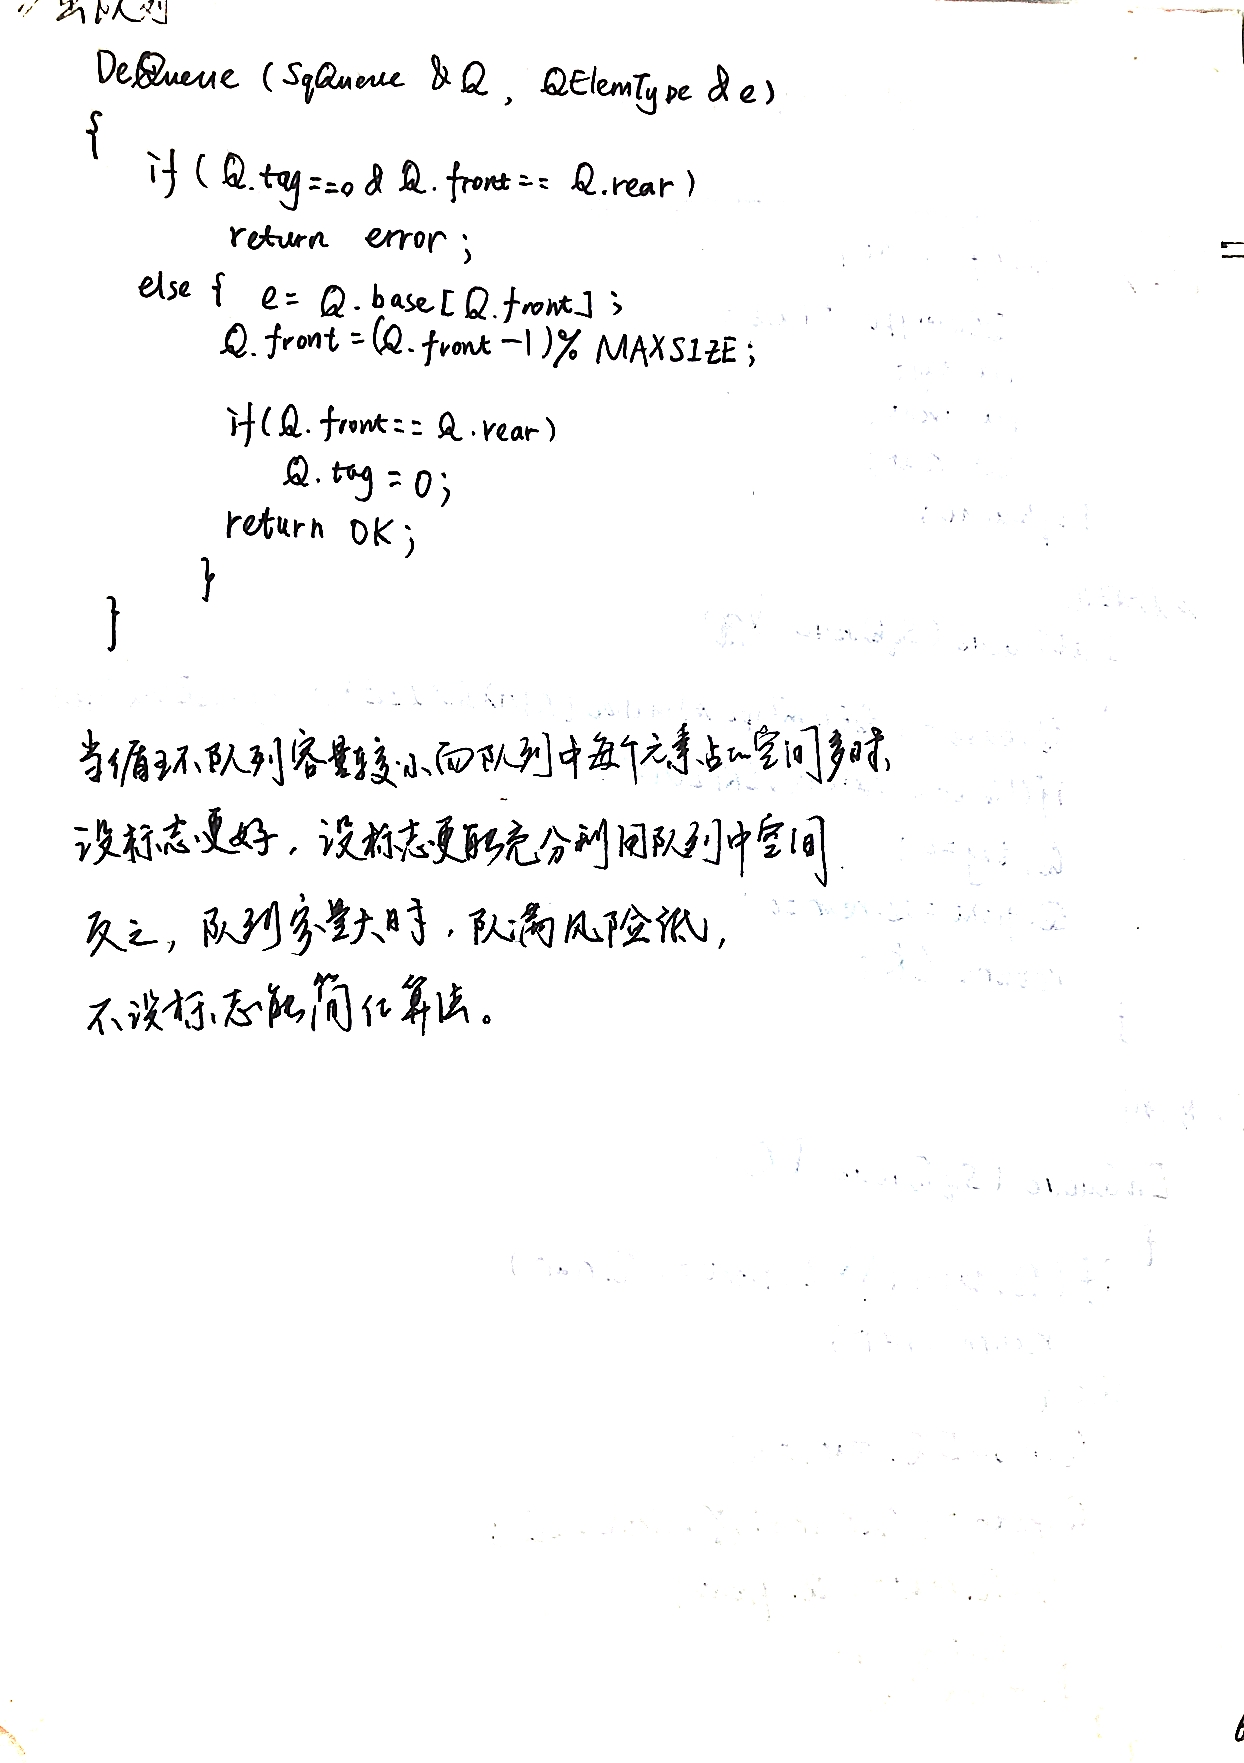 // 出队列
DeQueue (SqQueue &Q, QElemType &e)
{
if (Q.tag==0 & Q.front== Q.rear)
return error;
else { e= Q.base[Q.front];
Q.front=(Q.front-1)% MAXSIZE;
if(Q.front== Q.rear)
Q.tag=0;
return OK;
}
}
当循环队列容量较小而队列中每个元素占的空间多时,
设标志更好,设标志更能充分利用队列中空间
反之,队列容量大时,队满风险低,
不设标志能简化算法。